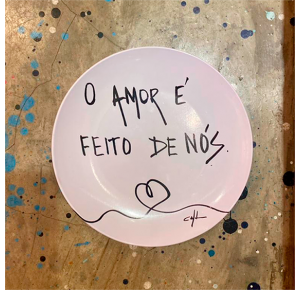 O AMOR É
FEITO DE NÓS.